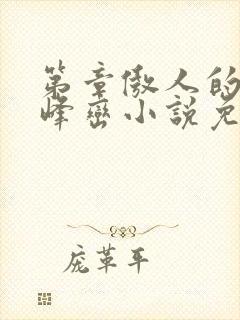 第章傲人的
峰峦小説免
庞革平